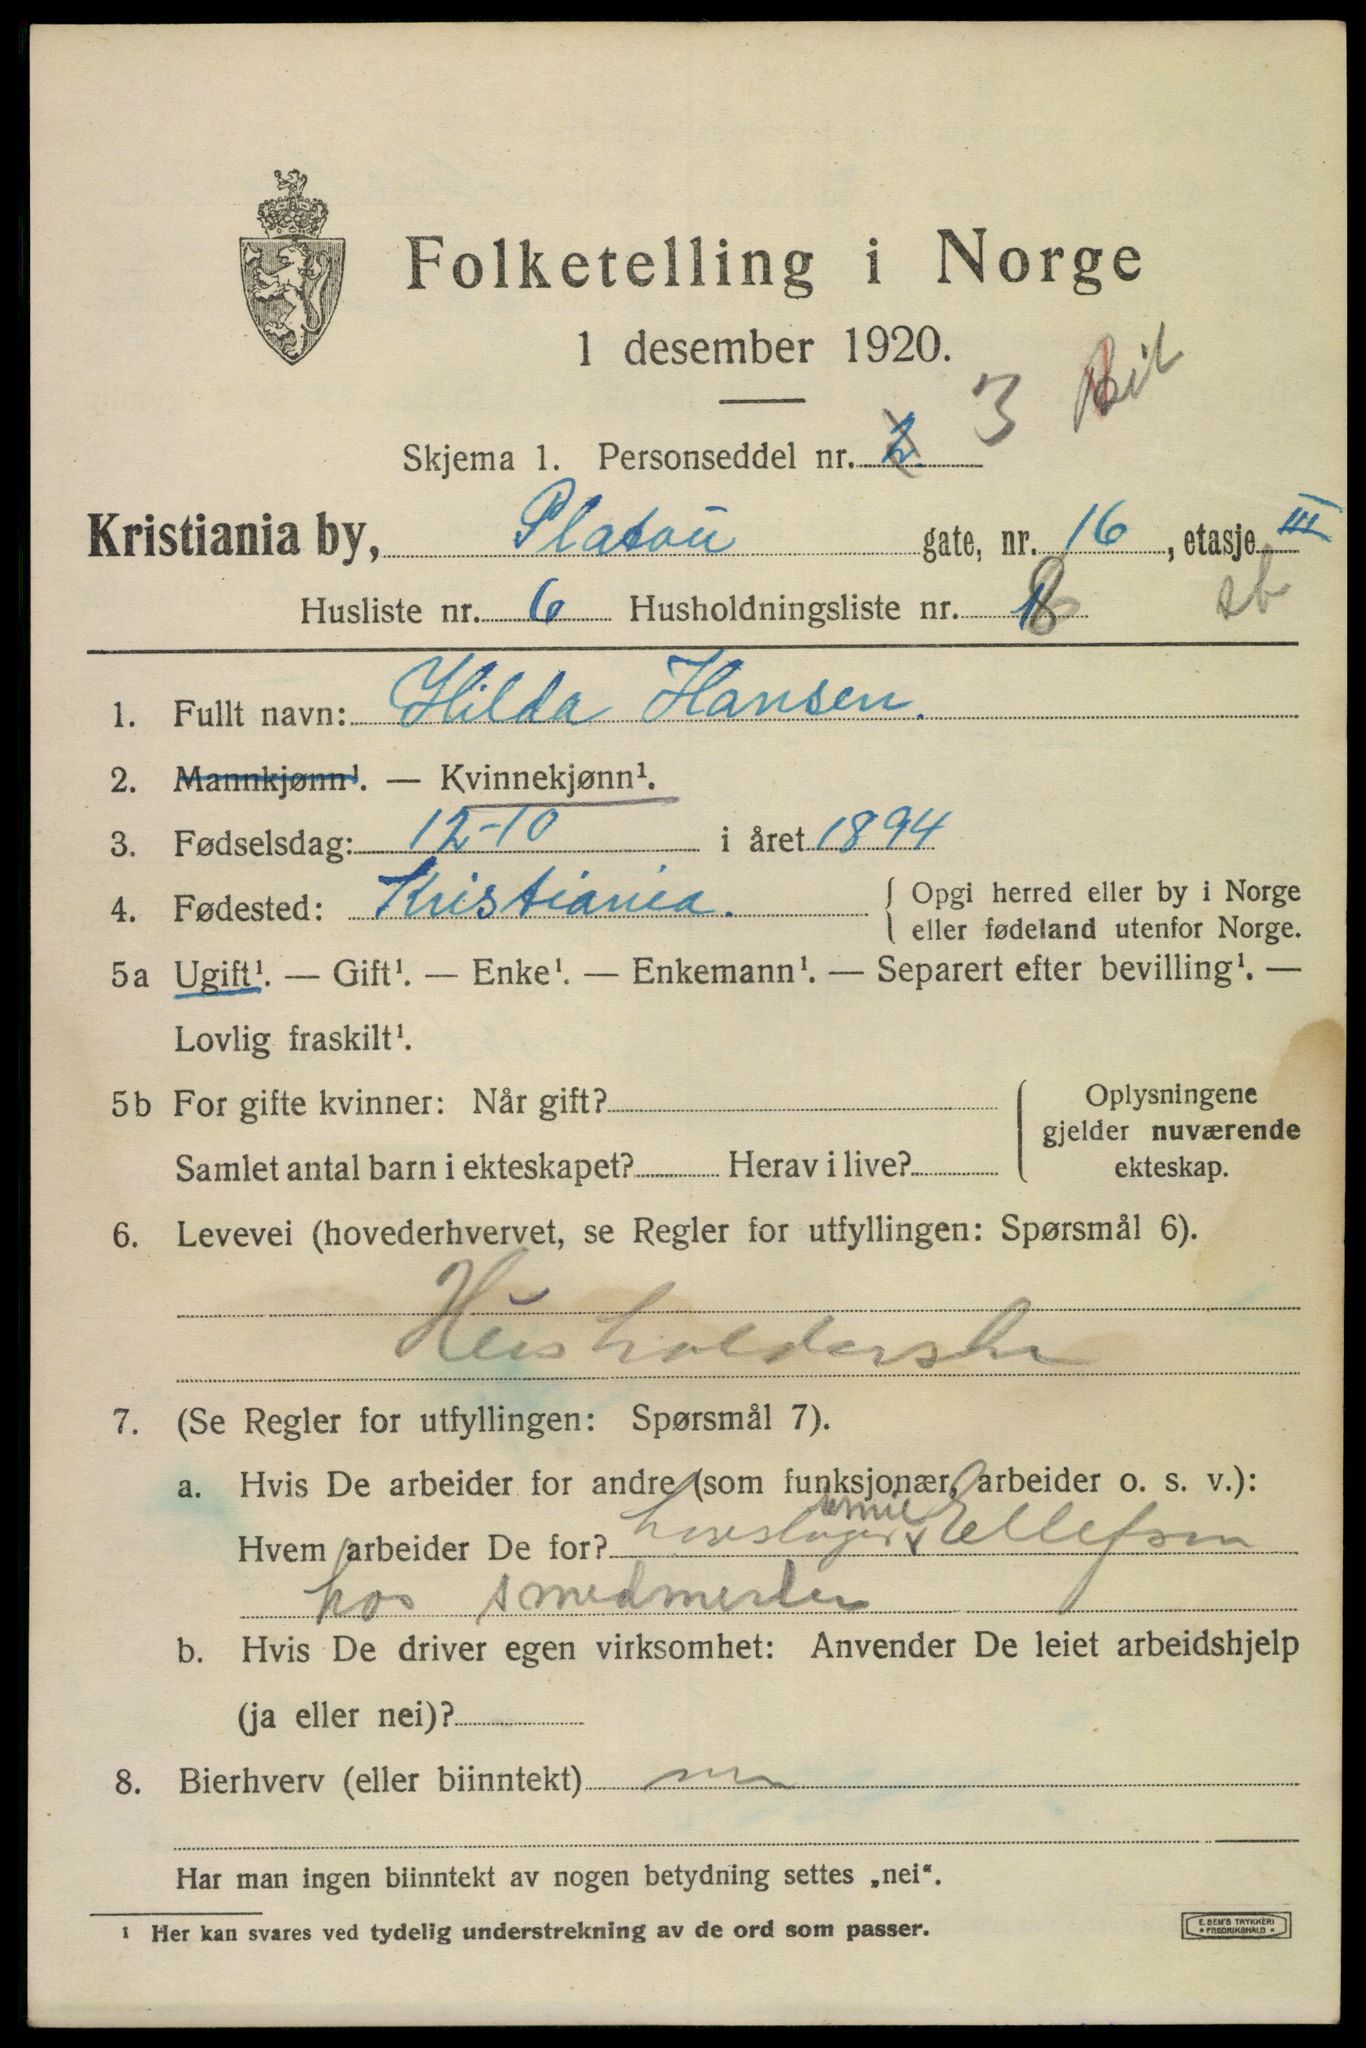 Folketelling i Norge
1 desember 1920.
3
Skjema 1. Personseddel nr. 2
Kristiania by, Platou gate, nr. 16, etasje III
Husliste nr. 6 Husholdningsliste nr. 8
1. Fullt navn: Hilda Hansen.
2. Mannkjønn¹. — Kvinnekjønn¹.
3. Fødselsdag: 12-10 i året 1894
4. Fødested: Kristiania. { Opgi herred eller by i Norge
eller fødeland utenfor Norge.
5a Ugift¹. — Gift¹. — Enke¹. — Enkemann¹. — Separert efter bevilling¹. —
Lovlig fraskilt¹.
5b For gifte kvinner: Når gift? { Oplysningene
gjelder nuværende
Samlet antal barn i ekteskapet? Herav i live? ekteskap.
6. Levevei (hovederhvervet, se Regler for utfyllingen: Spørsmål 6).
Husholderske
7. (Se Regler for utfyllingen: Spørsmål 7).
a. Hvis De arbeider for andre (som funksjonær, arbeider o. s. v.):
Hvem arbeider De for? Ellefsen
hos
b. Hvis De driver egen virksomhet: Anvender De leiet arbeidshjelp
(ja eller nei)?
8. Bierhverv (eller biinntekt) nei
Har man ingen biinntekt av nogen betydning settes „nei“.
¹ Her kan svares ved tydelig understrekning av de ord som passer.
E. SEM'S TRYKKERI
FREDRIKSHALD